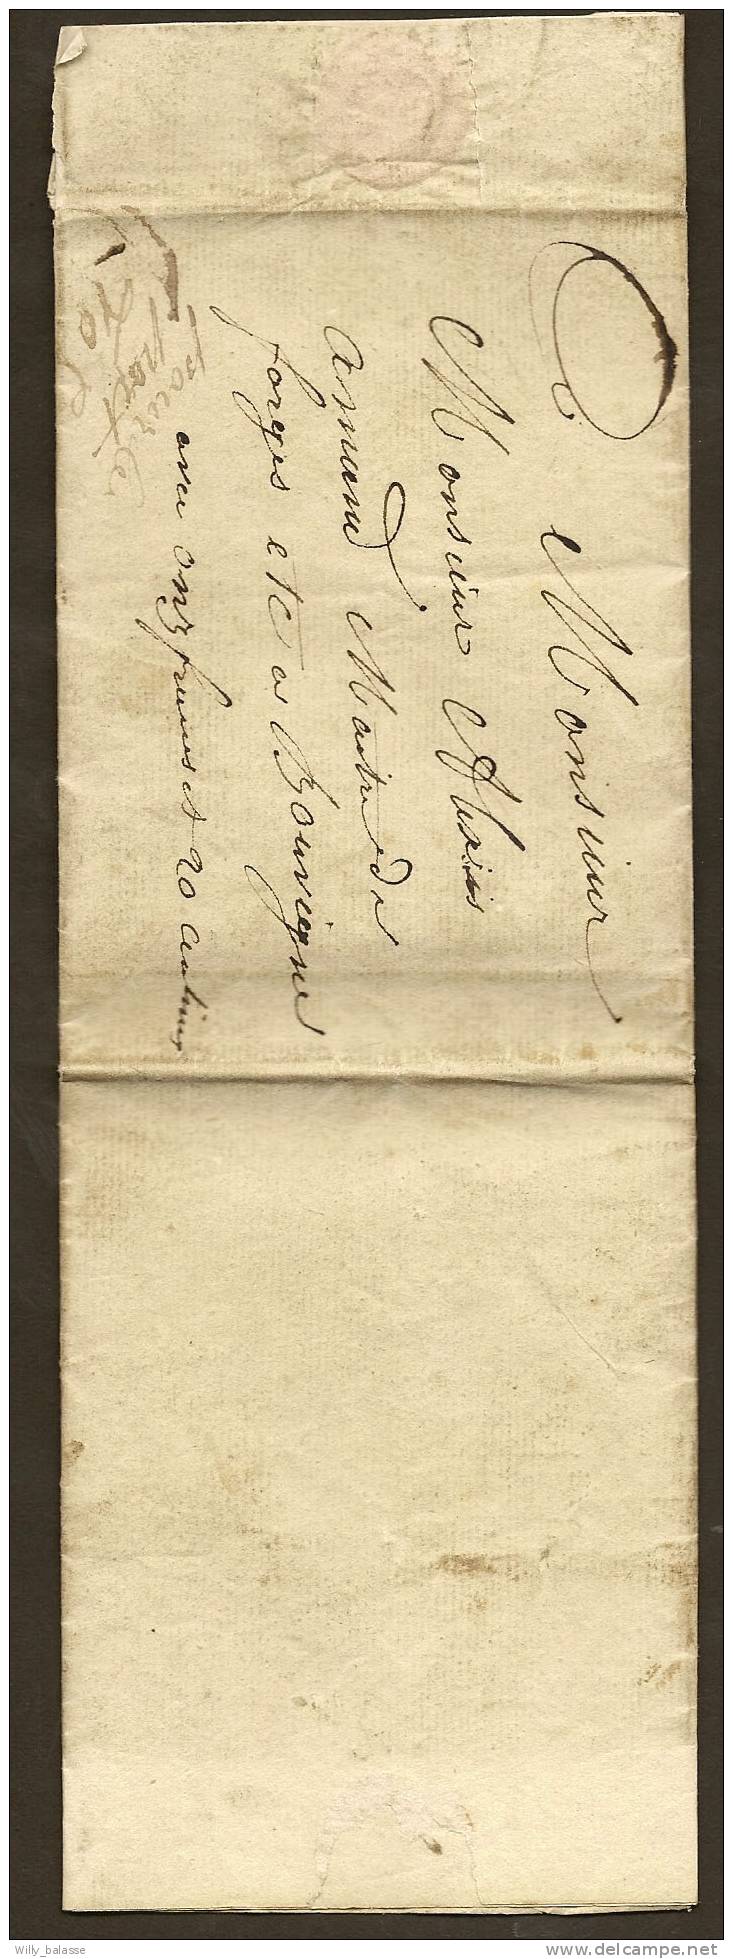 A Monsieur
Monsieur Alexis
amand Maitre de
forges etc a Bouvigne
avec onze francs et 20 centimes
pour le
port
Willy_balasse
delcampe.net